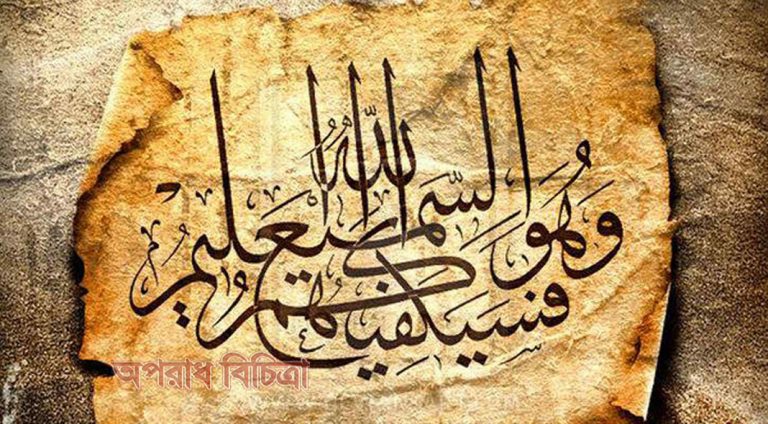 فَسَيَكْفِيكَهُمُ اللَّهُ
وَهُوَ السَّمِيعُ الْعَلِيمُ
অপরাধ বিচিত্রা